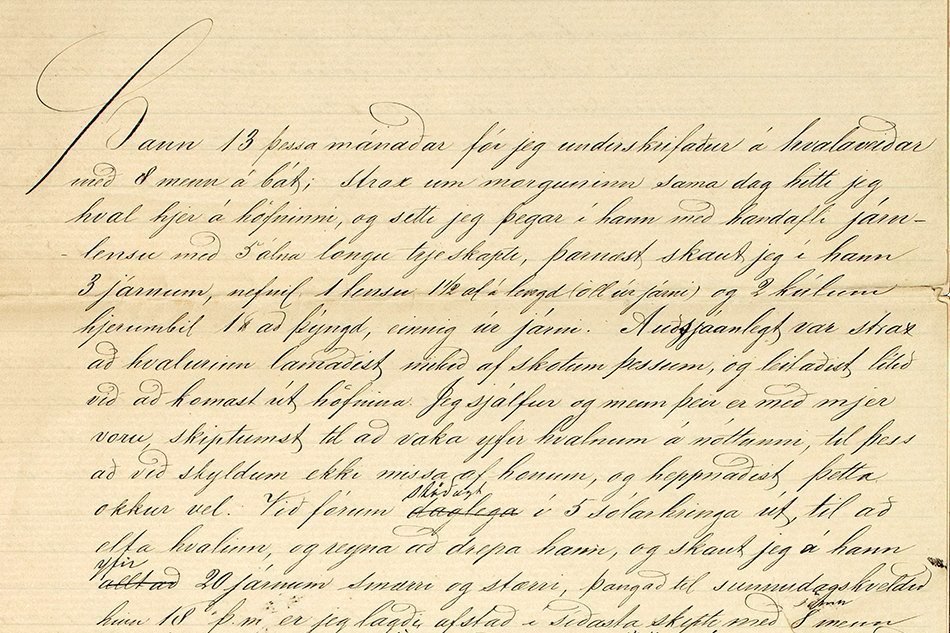 Þann 13 þessa mánaðar fór jeg undirskrifaður á hvalaveiðar
með 8 menn á bát; strax um morguninn sama dag hitti jeg
hval hjer á höfninni, og setti jeg þegar í hann með handafli járn-
-lensu með 5 álna löngu trjeskapti, þarnæst skaut jeg í hann
3 járnum, nefnil. 1 lensu 1½ al á lengd (öll úr járni) og 2 kúlum
hjerumbil 1 ℔ að þýngd, einnig úr járni. Auðsjáanlegt var strax
að hvalurinn lamaðist mikið af skotum þessum, og leitaðist lítið
við að komast út höfnina. Jeg sjálfur og menn þeir er með mjer
voru, skiptumst til að vaka yfir hvalnum á nóttunni, til þess
að við skyldum ekki missa af honum, og heppnaðist þetta
okkur vel. Við fórum daglega stöðugt í 5 sólarhringa út, til að
elta hvalinn, og reyna að drepa hann, og skaut jeg á hann
allt að yfir 20 járnum smærri og stærri, þangað til sunnudagskveldið
hinn 18 þ.m. er jeg lagði afstað í síðasta skipti með sömu 8 menn